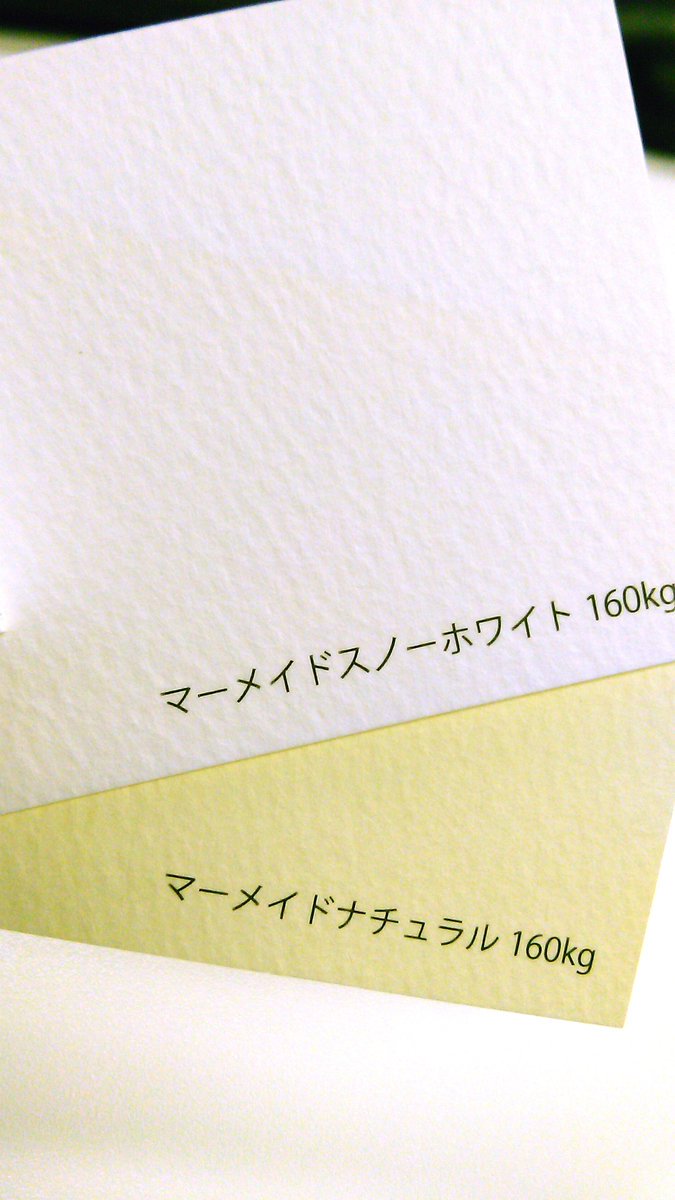 マーメイドスノーホワイト 160kg
マーメイドナチュラル 160kg